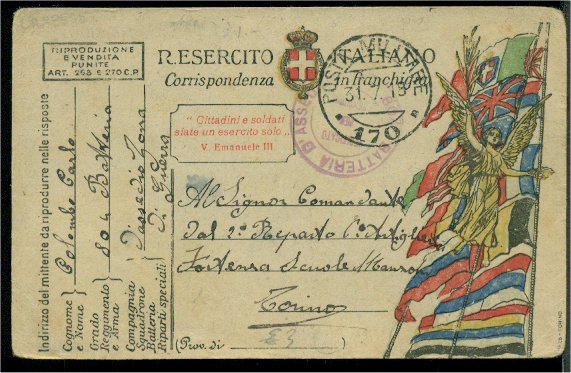 RIPRODUZIONE
E VENDITA
PUNITE
ART. 268 E 270 C.P.
R. ESERCITO ITALIANO
Corrispondenza in franchigia
POSTA MILITARE
31.7.18
170
BATTERIA D'ASSEDIO
" Cittadini e soldati
siate un esercito solo "
V. Emanuele III
Al Signor Comandante
dal 2° Reparto Artiglieria
Fortezza Scuole
Torino
(Prov. di
Indirizzo del mittente da riprodurre nelle risposte
Cognome e Nome
Colombo Carlo
Grado
Reggimento
e Arma
Batteria
Compagnia
Squadrone
Batteria
Riparti speciali
D'assedio Zona
Di Guerra